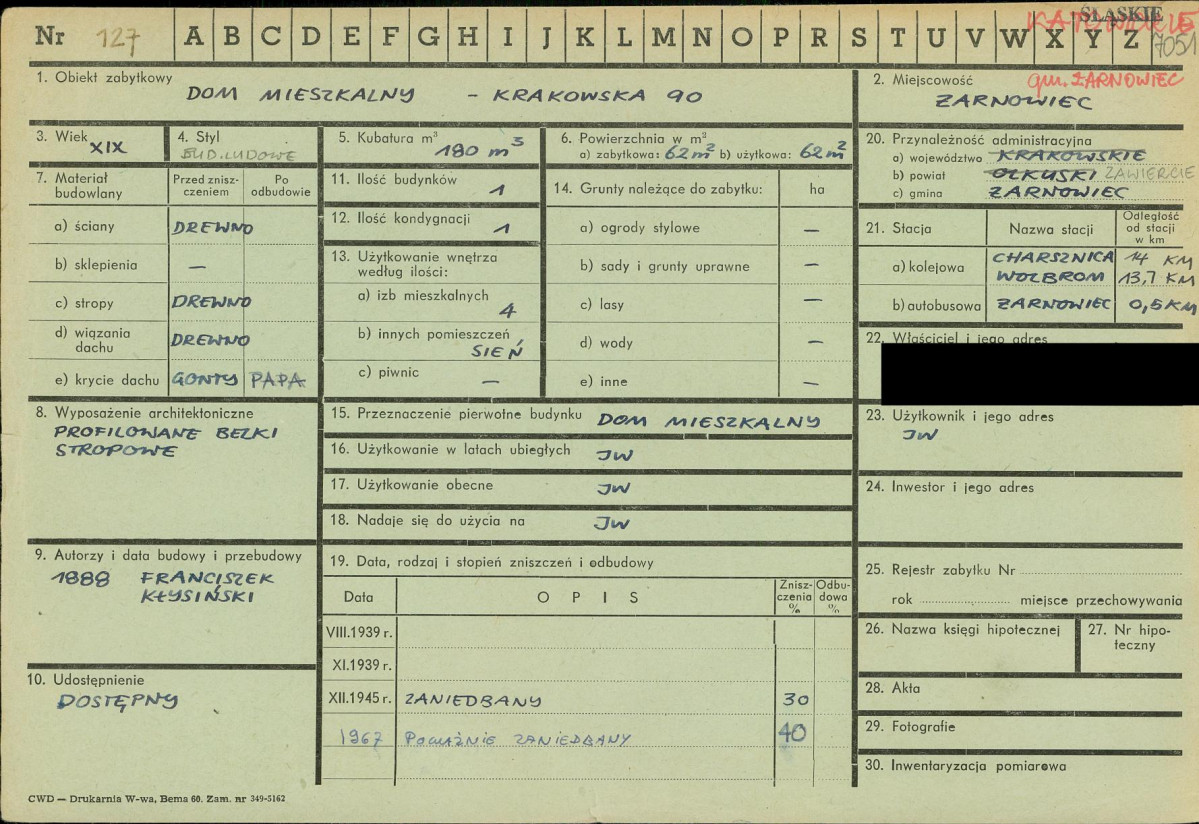 Nr 127 A B C D E F G H I J K L M N O P R S T U V W X Y Z
ŚLĄSKIE
KATOWICKIE
7051
1. Obiekt zabytkowy
DOM MIESZKALNY - KRAKOWSKA 90
2. Miejscowość
gm. ŻARNOWIEC
ŻARNOWIEC
3. Wiek XIX
4. Styl
BUD. LUDOWE
5. Kubatura m³
180 m³
6. Powierzchnia w m²
a) zabytkowa: 62m² b) użytkowa: 62m²
20. Przynależność administracyjna
a) województwo KRAKOWSKIE
b) powiat OLKUSKI ZAWIERCIE
c) gmina ŻARNOWIEC
7. Materiał budowlany
Przed zniszczeniem
Po odbudowie
a) ściany DREWNO
b) sklepienia —
c) stropy DREWNO
d) wiązania dachu DREWNO
e) krycie dachu GONTY PAPA
11. Ilość budynków 1
12. Ilość kondygnacji 1
13. Użytkowanie wnętrza
według ilości:
a) izb mieszkalnych
4
b) innych pomieszczeń
SIEŃ
c) piwnic —
14. Grunty należące do zabytku: ha
a) ogrody stylowe —
b) sady i grunty uprawne —
c) lasy —
d) wody —
e) inne —
21. Stacja
Nazwa stacji
Odległość
od stacji
w km
a) kolejowa CHARSZNICA 14 KM
WOLBROM 13,7 KM
b) autobusowa ŻARNOWIEC 0,5 KM
22. Właściciel i jego adres
8. Wyposażenie architektoniczne
PROFILOWANE BELKI
STROPOWE
15. Przeznaczenie pierwotne budynku DOM MIESZKALNY
16. Użytkowanie w latach ubiegłych JW
17. Użytkowanie obecne JW
18. Nadaje się do użycia na JW
23. Użytkownik i jego adres
JW
24. Inwestor i jego adres
9. Autorzy i data budowy i przebudowy
1888 FRANCISZEK
KŁYSIŃSKI
19. Data, rodzaj i stopień zniszczeń i odbudowy
Data
OPIS
Zniszczenia
%
Odbudowa
%
VIII.1939 r.
XI.1939 r.
XII.1945 r. ZANIEDBANY 30
1967 POWAŻNIE ZANIEDBANY 40
10. Udostępnienie
DOSTĘPNY
25. Rejestr zabytku Nr
rok miejsce przechowywania
26. Nazwa księgi hipotecznej
27. Nr hipoteczny
28. Akta
29. Fotografie
30. Inwentaryzacja pomiarowa
CWD — Drukarnia W-wa, Bema 60. Zam. nr 349-5162